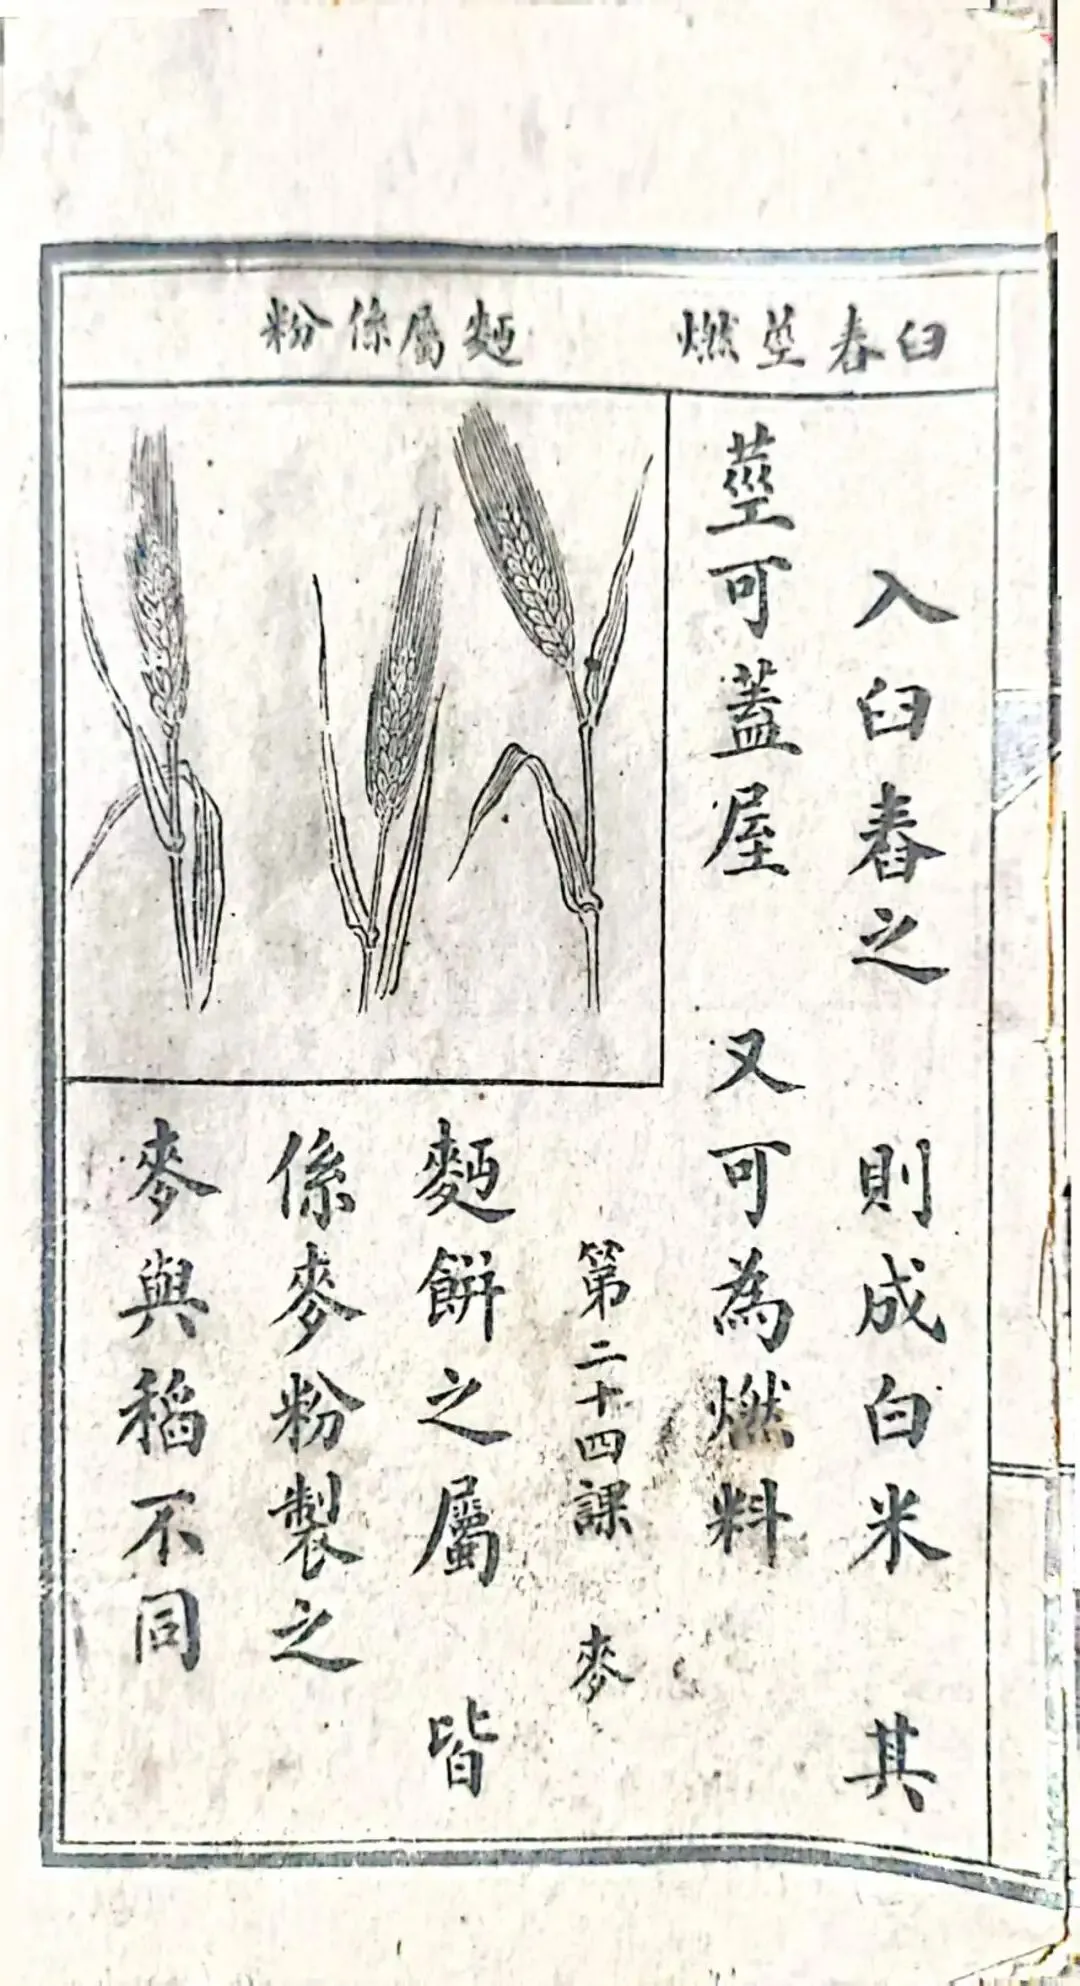 臼舂莖燃
麪屬係粉
入臼舂之　則成白米　其
莖可蓋屋　又可為燃料
第二十四課　麥
麪餅之屬　皆
係麥粉製之
麥與稻不同